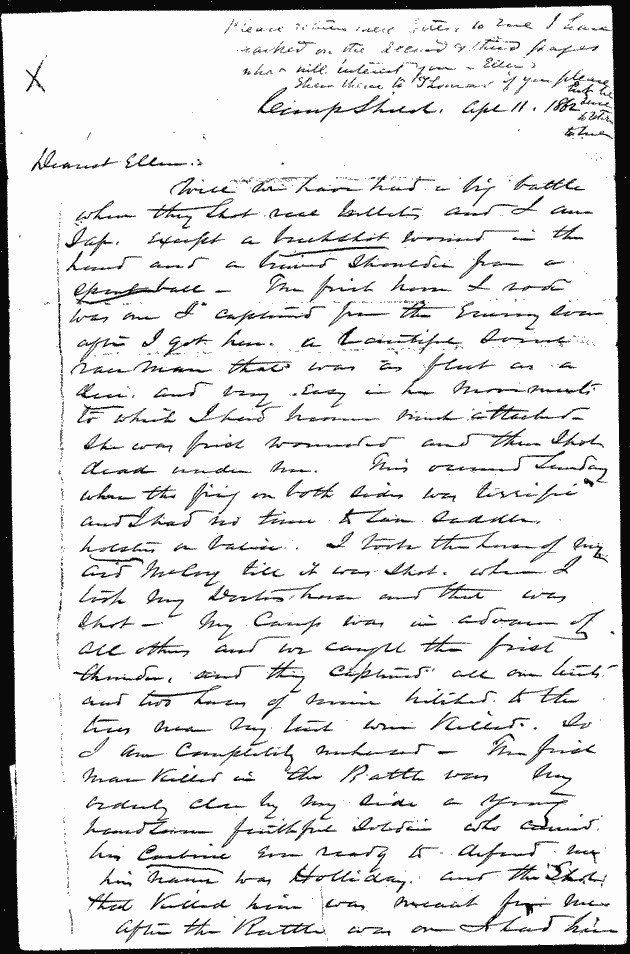 Please return these letters to me I have
marked on the second & third pages
what will interest you - Ellen
Show these to Thomas if you please
X
Camp Shiloh, Apl 11. 1862
to
Dearest Ellen:
Well we have had a big battle
when they Shot real bullets and I am
Saf. except a buckshot wound in the
hand and a bruised Shoulder from a
spent ball - The first horse I rode
was one I captured from the Enemy soon
after I got here. a beautiful Sorrel
race mare that was as fleet as a
deer. and very Easy in her movements
to which I had become much attached
She was first wounded and then Shot
dead under me. This occurred Sunday
when the firing on both Sides was terrific
and I had no time to Save Saddle,
holsters or valise. I took the horse of my
aid McCoy till it was Shot. when I
took my Doctors horse and that was
Shot - My Camp was in advance of
all others and we caught the first
thunder, and they captured all our tents
and two horses of mine hitched to the
trees near my tent were Killed. So
I am Completely unhorsed - The first
man Killed in the Battle was My
orderly close by my side a young
handsome faithful Soldier who carried
his Carbine Ever ready to defend me
his name was Holliday. and the Shot
that Killed him was meant for me
After the Battle was over I had him